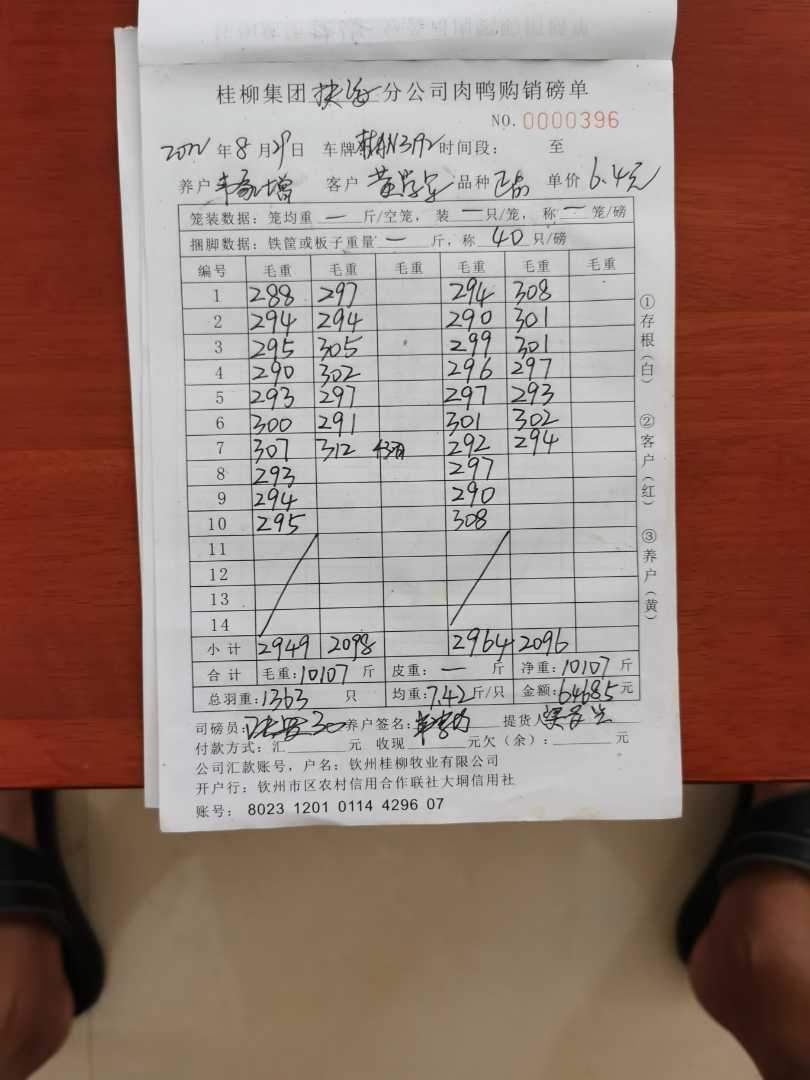 桂柳集团 分公司肉鸭购销磅单
NO. 0000396
2022 年 8 月 29 日 车牌 N3192 时间段: 至
养户 增 客户 黄 品种 正品 单价 6.4元
笼装数据: 笼均重 一 斤/空笼, 装 一 只/笼, 称 一 笼/磅
捆脚数据: 铁筐或板子重量 一 斤, 称 40 只/磅
编号 毛重 毛重 毛重 毛重 毛重 毛重
1 288 297 294 308
2 294 294 290 301
3 295 305 299 301
4 290 302 296 297
5 293 297 297 293
6 300 291 301 302
7 307 312 43只 292 294
8 293 297
9 294 290
10 295 308
11
12
13
14
小计 2949 2098 2964 2096
合计 毛重: 10107 斤 皮重: 一 斤 净重: 10107 斤
总羽重: 1363 只 均重: 7.42 斤/只 金额: 64685 元
司磅员: 养户签名: 提货人
付款方式: 汇 元 收现 元欠(余): 元
公司汇款账号, 户名: 钦州桂柳牧业有限公司
开户行: 钦州市区农村信用合作联社大垌信用社
账号: 8023 1201 0114 4296 07
①存根(白) ②客户(红) ③养户(黄)